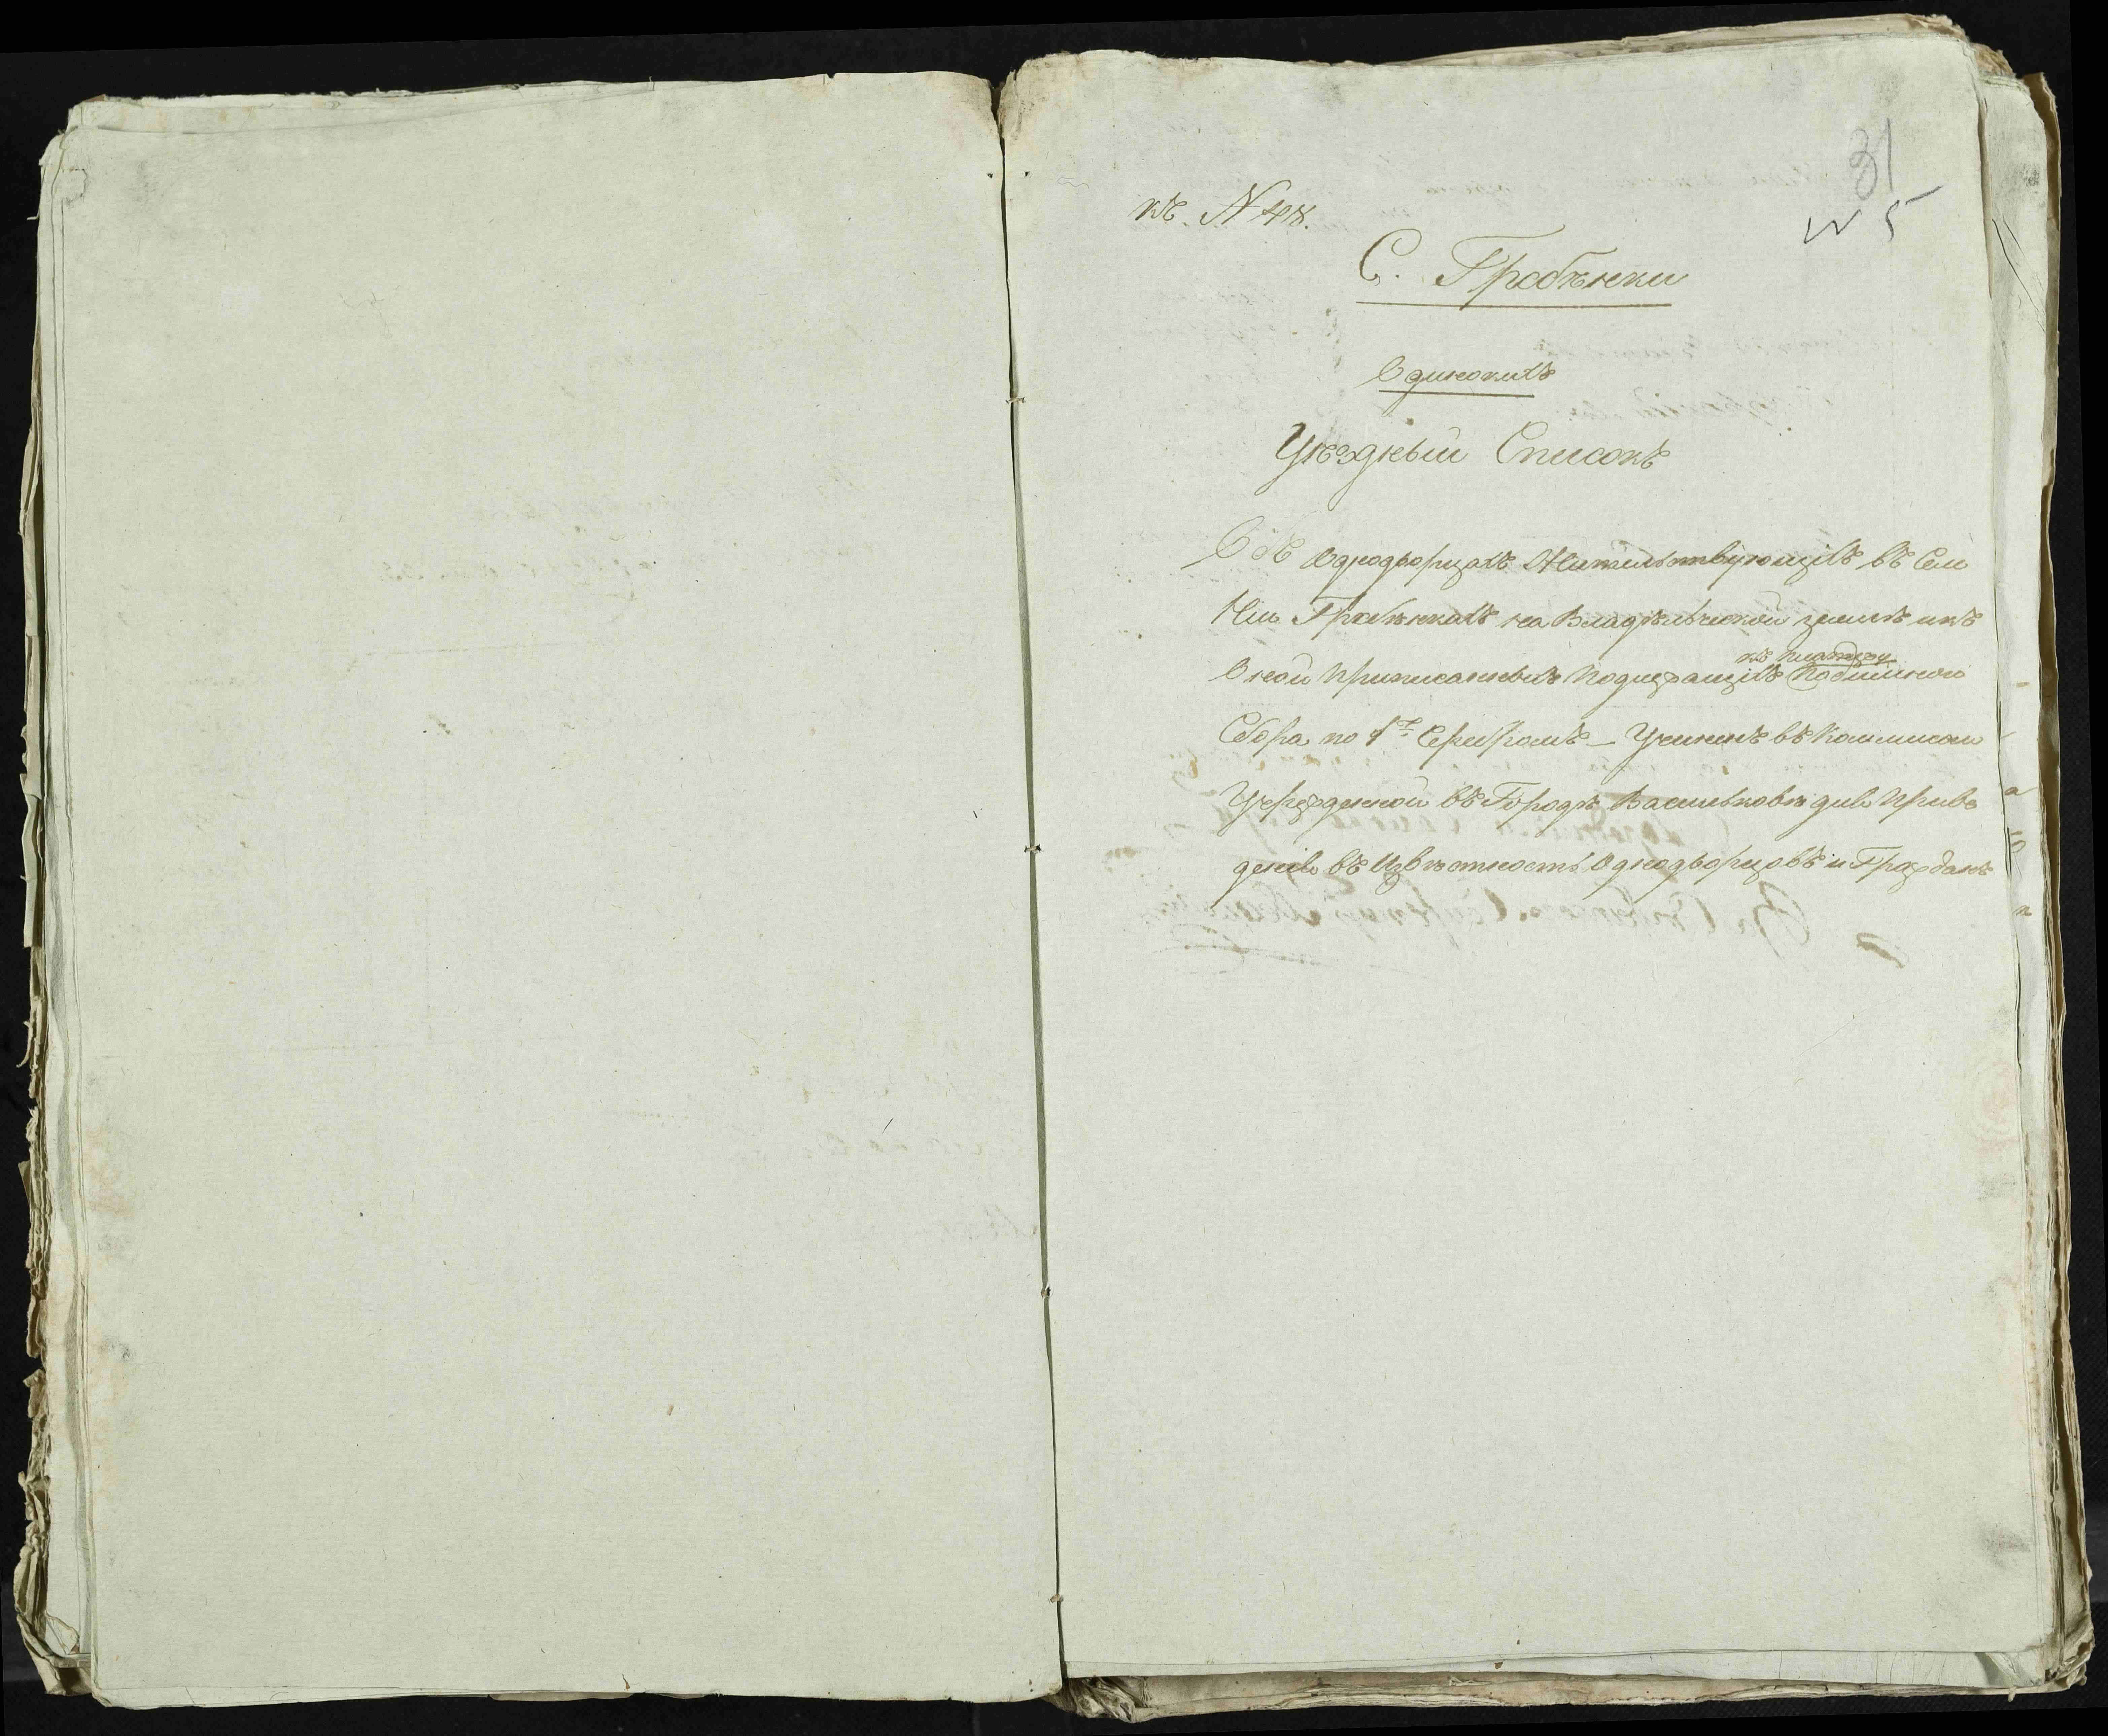 31
къ. N 48.
N 5
С. Гребѣнки
Одинокихъ
Уѣздный Списокъ
Объ Однодворцахъ Жительствующихъ въ Селе
Ніи Гребѣнкахъ на Владѣльческой землѣ и къ
къ платежу
Оной приписанныхъ подлежащихъ Подымнаго
Сбора по 1 Серебромъ – Учиненъ въ Коммисіи
Учрежденной въ Городѣ Васильковѣ для приве
денія въ Извѣстность Однодворцовъ и Гражданъ